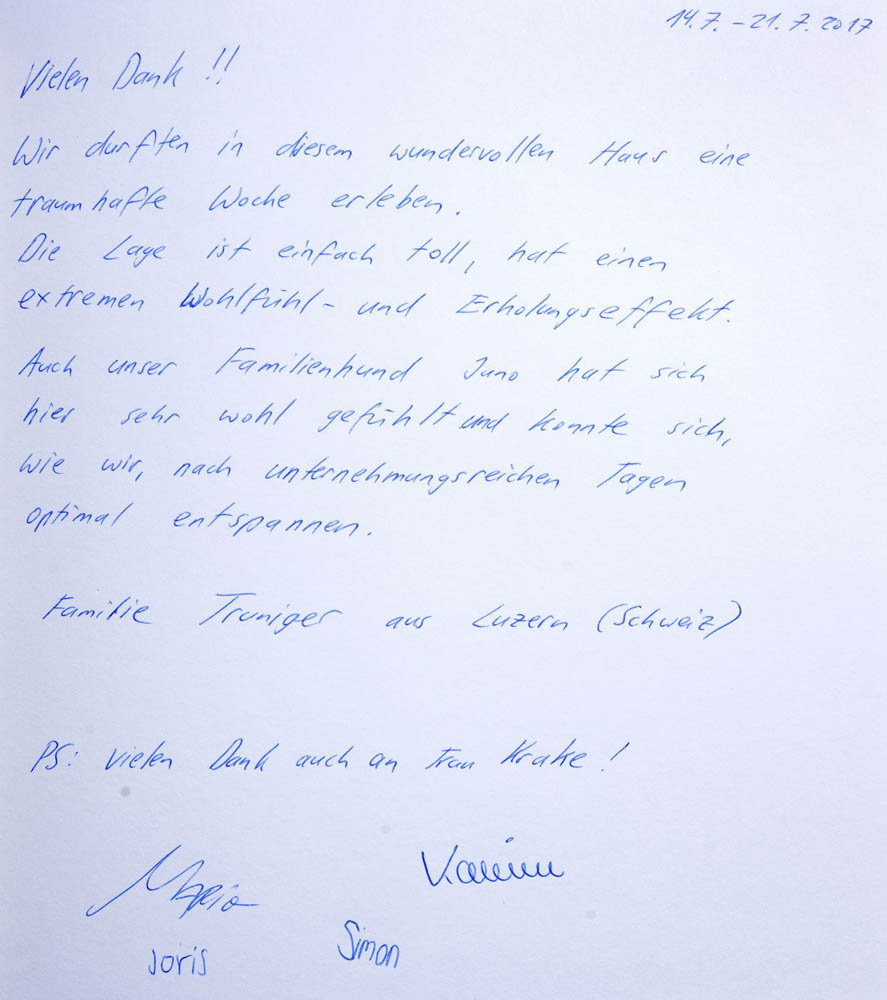 14.7. – 21.7.2017
Vielen Dank !!
Wir durften in diesem wundervollen Haus eine
traumhafte Woche erleben.
Die Lage ist einfach toll, hat einen
extremen Wohlfühl- und Erholungseffekt.
Auch unser Familienhund Juno hat sich
hier sehr wohl gefühlt und konnte sich,
wie wir, nach unternehmungsreichen Tagen
optimal entspannen.
Familie Truniger aus Luzern (Schweiz)
PS: Vielen Dank auch an Frau Krake !
Mario
Joris Simon